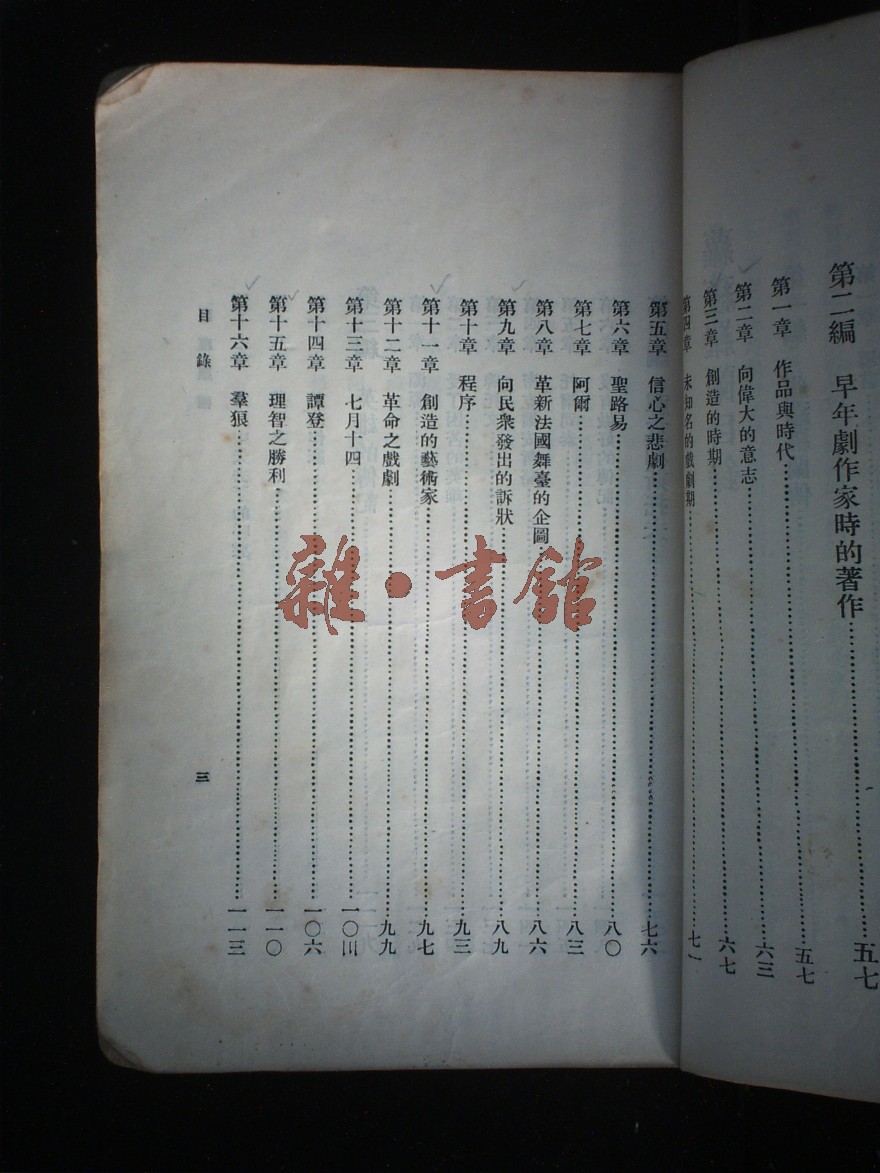 第二編　早年劇作家時的著作……五七
第一章　作品與時代……五七
第二章　向偉大的意志……六三
第三章　創造的時期……六七
第四章　未知名的戲劇期……七一
第五章　信心之悲劇……七六
第六章　聖路易……八〇
第七章　阿爾……八三
第八章　革新法國舞臺的企圖……八六
第九章　向民衆發出的訴狀……八九
第十章　程序……九三
第十一章　創造的藝術家……九七
第十二章　革命之戲劇……九九
第十三章　七月十四……一〇三
第十四章　譚登……一〇六
第十五章　理智之勝利……一一〇
第十六章　羣狼……一一三
目錄　三
雜·書館